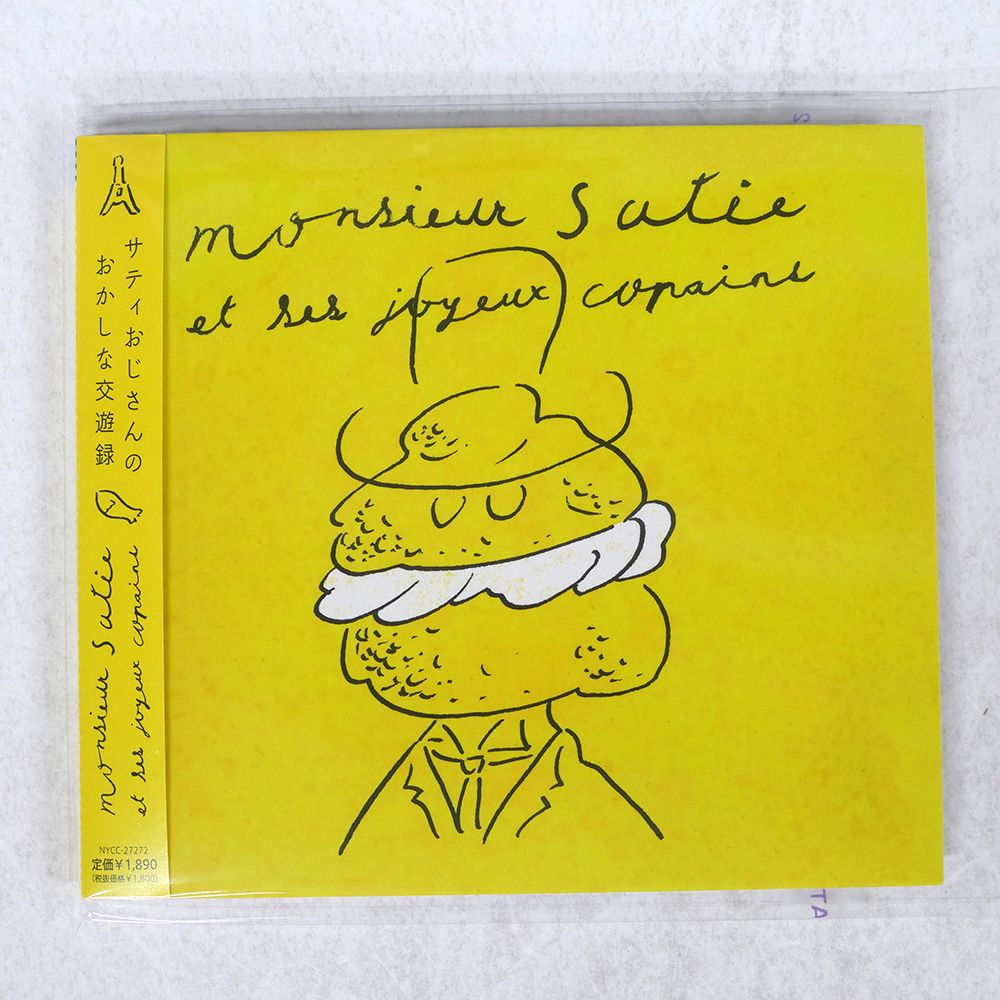 monsieur Satie
et ses joyeux copains
サティおじさんの
おかしな交遊録
monsieur Satie
et ses joyeux copains
NYCC-27272
定価¥1,890
(税抜価格¥1,800)
TA